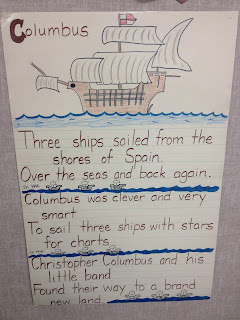 Columbus
Three ships sailed from the
shores of Spain.
Over the seas and back again.
Columbus was clever and very
smart
To sail three ships with stars
for charts.
Christopher Columbus and his
little band
Found their way to a brand
new land.